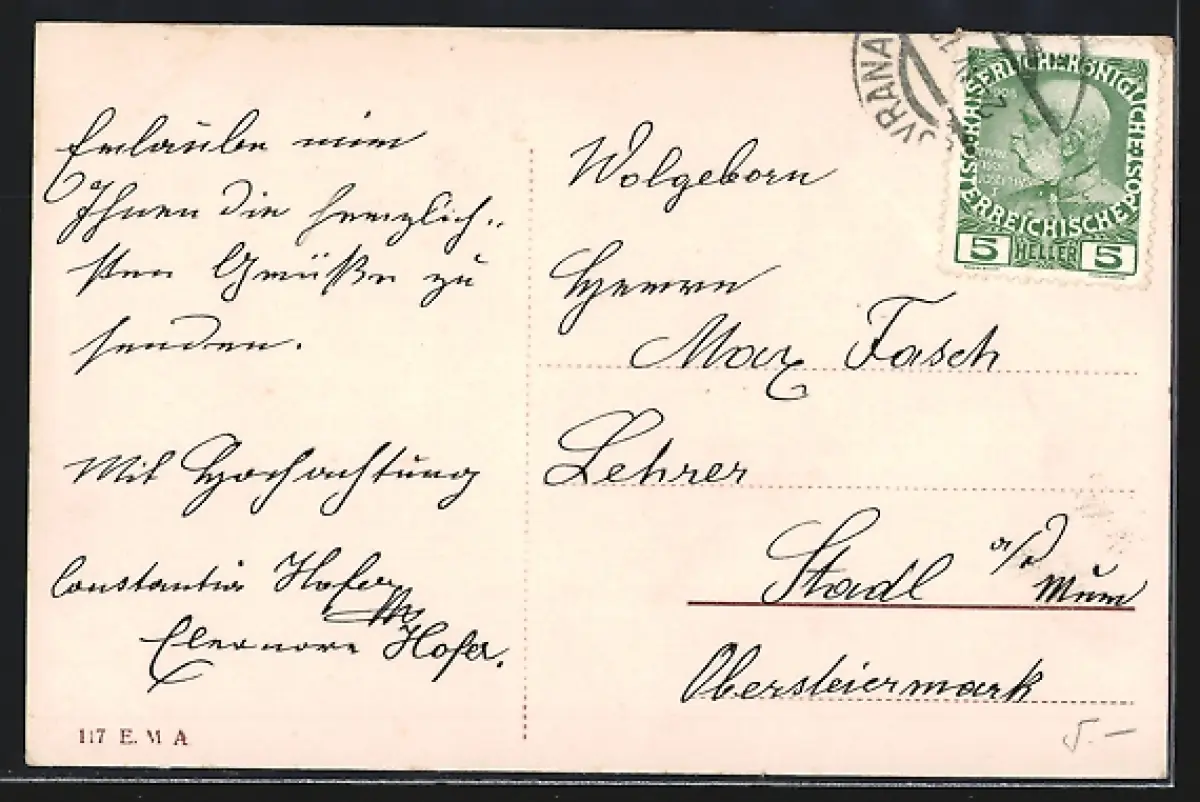 Erlaube mir
Ihnen die herzlich-
sten Grüße zu
senden.
Mit Hochachtung
Constantia Hofer
Eleonore Hofer.
117 E. M A
Wolgeborn
Herrn
Max Fasch
Lehrer
Stadl a/d Mur
Obersteiermark
5.–
VRANA
KAISERLICHEKÖNIGLICHE
ÖSTERREICHISCHEPOST
1908
5 HELLER 5